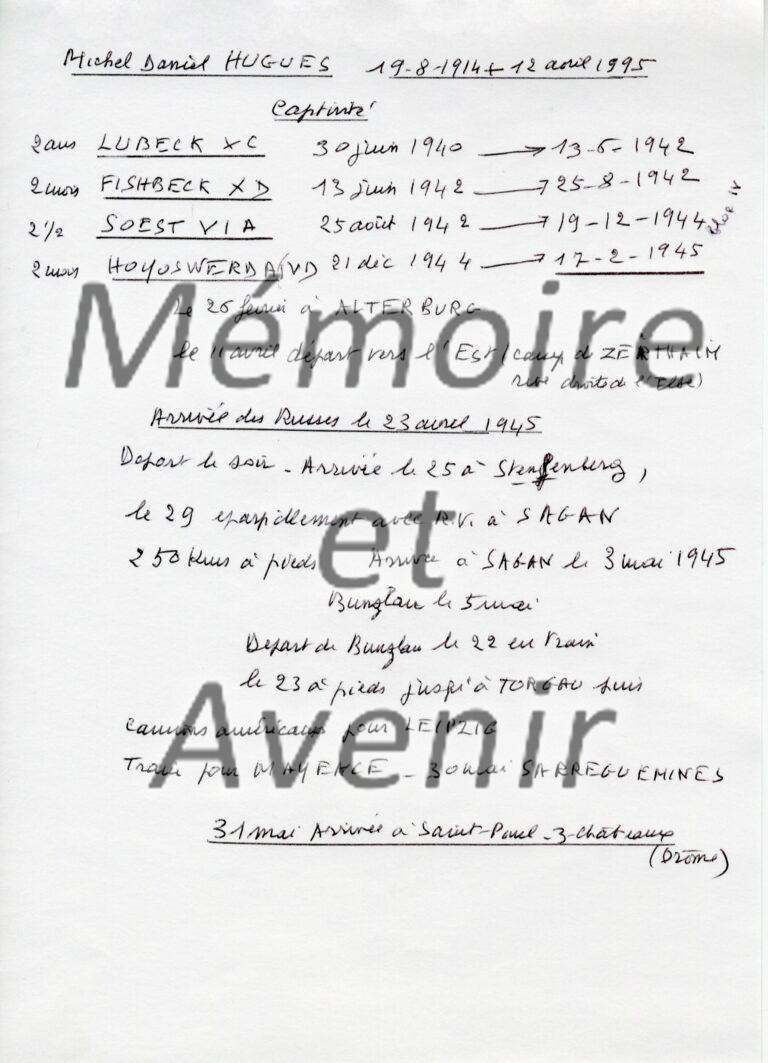 Michel Daniel HUGUES 19-8-1914 + 12 avril 1995
Captivité
2 ans LUBECK X C 30 juin 1940 → 13-6-1942
2 mois FISHBECK X D 13 juin 1942 → 25-8-1942
2 1/2 SOEST VI A 25 août 1942 → 19-12-1944
2 mois HOYOSWERDA IV D 21 déc 1944 → 17-2-1945
le 26 février à ALTERBURG
le 11 avril départ vers l'Est (camp de ZEITHAIM
rive droite de l'Elbe)
Arrivée des Russes le 23 avril 1945
Départ le soir - Arrivée le 25 à
le 29 eparpillement avec R.V. à SAGAN
250 Kms à pieds Arrivée à SAGAN le 3 mai 1945
Bunzlau le 5 mai
Depart de Bunzlau le 22 en train
le 23 à pieds jusqu'à TORGAU puis
Camions américains pour LEIPZIG
Train pour MAYENCE - 30 mai SARREGUEMINES
31 mai Arrivée à Saint-Paul-3-châteaux
(Drôme)
Mémoire
et
Avenir